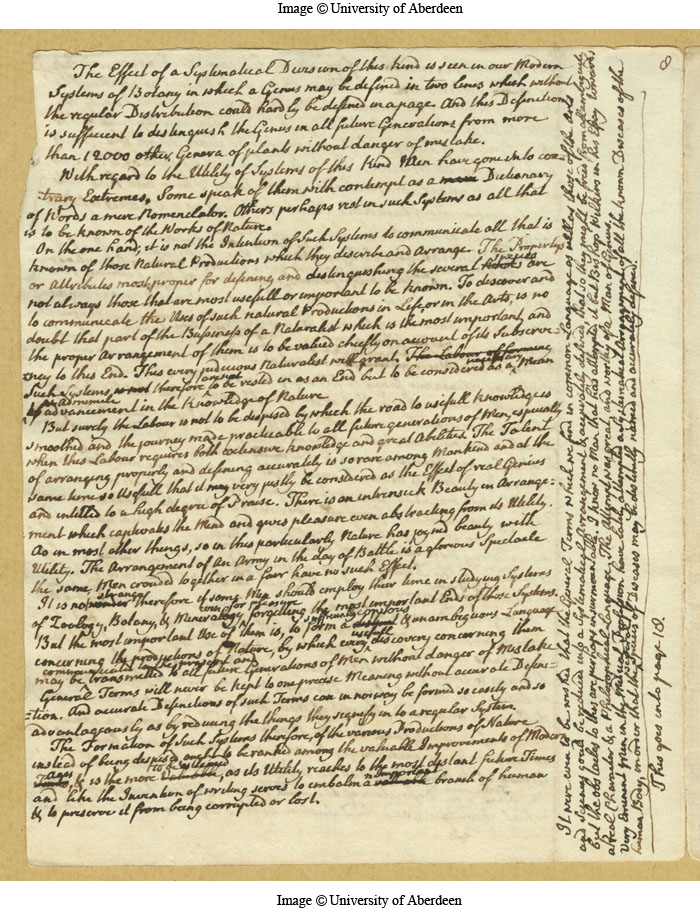 Image © University of Aberdeen
8
The Effect of a Systematical Division of this kind is seen in our Modern
Systems of Botany in which a Genus may be defined in two lines which without
the regular Distribution could hardly be defined in a page. And this Definition
is sufficient to distinguish the Genus in all future Generations from more
than 12000 other Genera of plants without danger of mistake.
With regard to the Utility of Systems of this Kind Men have gone into con-
trary Extremes. Some speak of them with contempt as a mere Dictionary
of Words a mere Nomenclator. Others perhaps rest in such Systems as all that
is to be known of the Works of Nature.
On the one hand, it is not the Intention of such Systems to communicate all that is
known of those Natural Productions which they describe and Arrange. The Propertys
or Attributes most proper for defining, and distinguishing the several species are
not always those that are most usefull or important to be known. To discover and
to communicate the Uses of such natural Productions in Life, or in the Arts, is no
doubt that part of the Bussiness of a Naturalist which is the most important, and
the proper Arrangement of them is to be valued chiefly on account of its Subservi-
ency to this End. This every judicious Naturalist will grant. The Labour
Such Systems is not therefore are not to be rested in as an End but to be considered as a Mean
of advancement in the Knowledge of Nature
But surely the Labour is not to be despised by which the road to usefull knowledge is
smoothed and the journey made practicable to all future generations of Men, especially
when this Labour requires both extensive knowledge and great Abilities. The Talent
of arranging properly and defining accurately is so rare among Mankind and at the
same time so Usefull that it may very justly be considered as the Effect of real Genius
and intitled to a high degree of Praise. There is an intrinsick Beauty in Arrange-
ment which captivates the Mind and gives pleasure even abstracting from its Utility.
As in most other things, so in this particularly Nature has joyned beauty with
Utility. The Arrangement of An Army in the Day of Battle is a glorious Spectacle
the same Men crouded together in a fair have no such Effect.
strange
It is no wonder therefore if some Men should employ their time in studying Systems
even for pleasure
of Zoology, Botany, & Mineralogy forgetting the most important Ends of those Systems.
sufficiently copious
But the most important Use of them is, to form a & unambiguous Language
usefull
concerning the productions of Nature, by which every discovery concerning them
communicated to the present and
may be transmitted to all future Generations of Men without danger of Mistake
General Terms will never be kept to one precise Meaning without accurate Defini-
tion. And accurate Definitions of such Terms can in no way be formed so easily and so
advantageously as by reducing the things they signify into a regular System.
The Formation of such Systems therefore, of the various Productions of Nature
instead of being despised ought to be ranked among the valuable Improvements of Modern
ages to be esteemed
& is the more, as its Utility reaches to the most distant future Times
important
and like the Invention of writing serves to embalm a branch of human
& to preserve it from being corrupted or lost.
It were even to be wished that the General Terms which we find in common Language as well as those of the Arts
and Sciences could be reduced into a Systematical Arrangement & accurately defined, that so they might be free from ambiguity
but the obstacles to this are perhaps insurmountable. I know no Man that has attempted it but Bishop Wilkins in his Essay towards
a real Character & a Philosophical Language. The attempt was great and worthy of a Man of Genius.
Very Eminent Men in the Medical Profession have lately attempted a Systematical Arrangement of all the known Diseases of the
human Body, in order that the Species of Diseases may be distinctly named and accurately defined.
This goes into page 18.
Image © University of Aberdeen